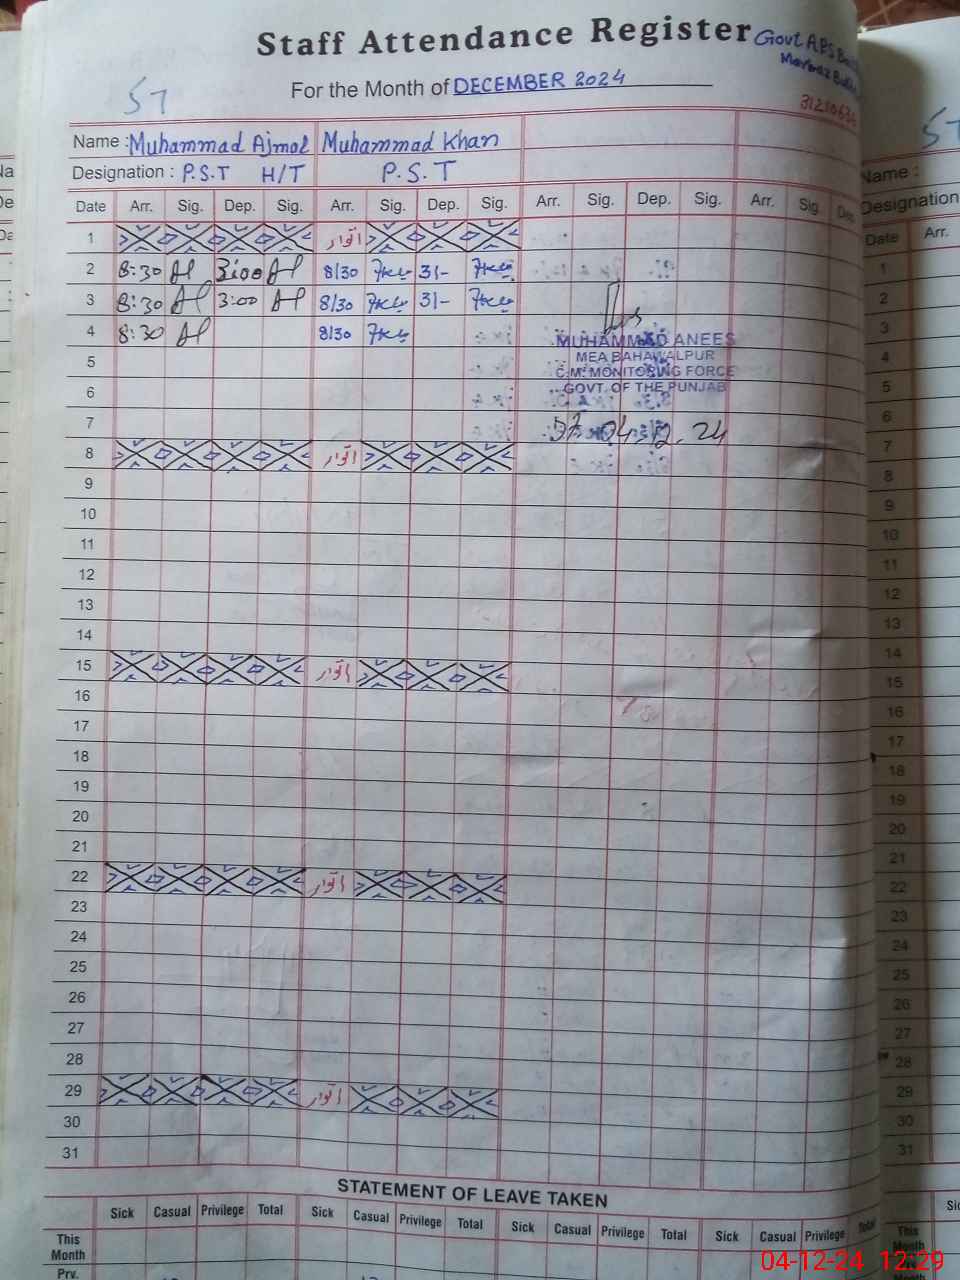 Staff Attendance Register
Govt APS
For the Month of DECEMBER 2024
57
Name : Muhammad Ajmal Muhammad Khan
Designation : P.S.T H/T P.S.T
Date Arr. Sig. Dep. Sig. Arr. Sig. Dep. Sig. Arr. Sig. Dep. Sig. Arr. Sig. Dep.
1 اتوار
2 8:30 3:00 8/30 3/-
3 8:30 3:00 8/30 3/-
4 8:30 8/30
MUHAMMAD ANEES
5
MEA BAHAWALPUR
C.M. MONITORING FORCE
6
GOVT. OF THE PUNJAB
7 04.12.24
8 اتوار
9
10
11
12
13
14
15 اتوار
16
17
18
19
20
21
22 اتوار
23
24
25
26
27
28
29 اتوار
30
31
STATEMENT OF LEAVE TAKEN
Sick Casual Privilege Total Sick Casual Privilege Total Sick Casual Privilege Total Sick Casual Privilege Total
This Month
Prv.
57
Name :
Designation
Date Arr.
1
2
3
4
5
6
7
8
9
10
11
12
13
14
15
16
17
18
19
20
21
22
23
24
25
26
27
28
29
30
31
This Month
04-12-24 12:29